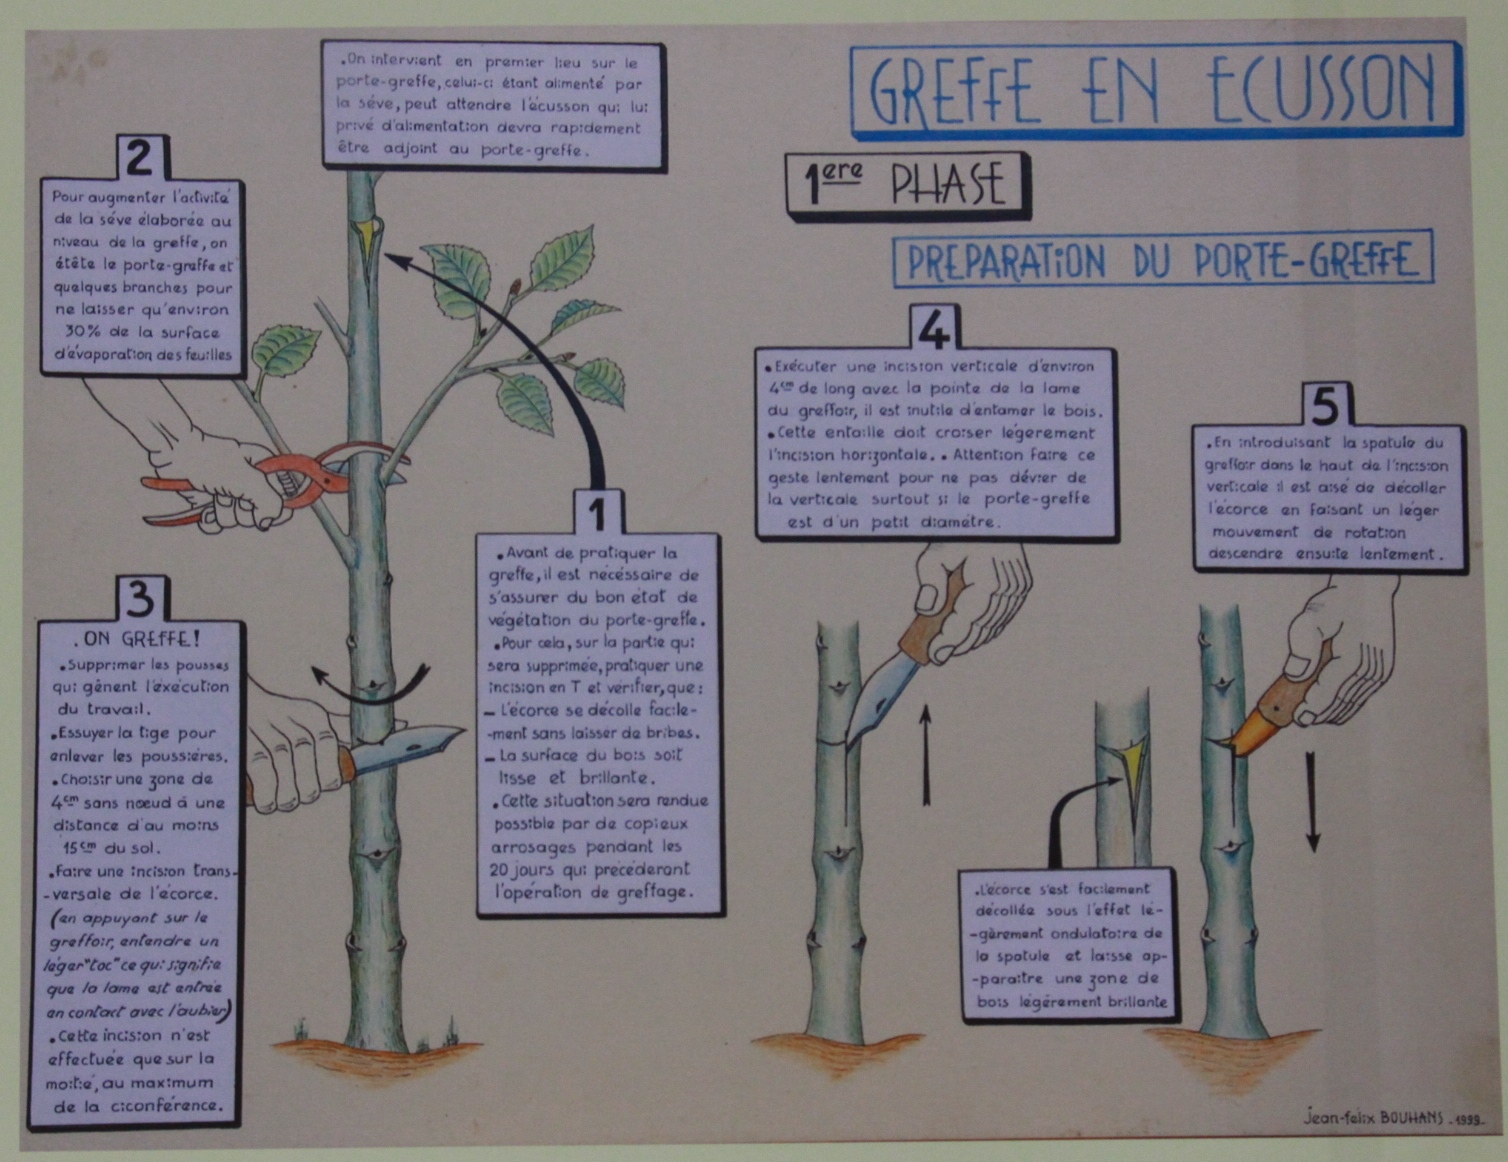 GREFFE EN ECUSSON
1ere PHASE
PREPARATION DU PORTE-GREFFE
.On intervient en premier lieu sur le
porte-greffe, celui-ci étant alimenté par
la séve, peut attendre l'écusson qui lui
privé d'alimentation devra rapidement
être adjoint au porte-greffe.
1
.Avant de pratiquer la
greffe, il est nécessaire de
s'assurer du bon état de
végétation du porte-greffe.
.Pour cela, sur la partie qui
sera supprimée, pratiquer une
incision en T et vérifier, que:
– L'écorce se décolle facile-
-ment sans laisser de bribes.
– La surface du bois soit
lisse et brillante.
.Cette situation sera rendue
possible par de copieux
arrosages pendant les
20 jours qui précéderont
l'opération de greffage.
2
Pour augmenter l'activité
de la séve élaborée au
niveau de la greffe, on
étête le porte-greffe et
quelques branches pour
ne laisser qu'environ
30% de la surface
d'évaporation des feuilles
3
.ON GREFFE!
.Supprimer les pousses
qui gênent l'exécution
du travail.
.Essuyer la tige pour
enlever les poussiéres.
.Choisir une zone de
4cm sans nœud à une
distance d'au moins
15cm du sol.
.Faire une incision trans-
-versale de l'écorce.
(en appuyant sur le
greffoir, entendre un
léger "toc" ce qui signifie
que la lame est entrée
en contact avec l'aubier)
.Cette incision n'est
effectuée que sur la
moitié, au maximum
de la ciconférence.
4
.Exécuter une incision verticale d'environ
4cm de long avec la pointe de la lame
du greffoir, il est inutile d'entamer le bois.
.Cette entaille doit croiser légerement
l'incision horizontale. . Attention faire ce
geste lentement pour ne pas dévier de
la verticale surtout si le porte-greffe
est d'un petit diamétre.
5
.En introduisant la spatule du
greffoir dans le haut de l'incision
verticale il est aisé de décoller
l'écorce en faisant un léger
mouvement de rotation
descendre ensuite lentement.
.L'écorce s'est facilement
décollée sous l'effet lé-
-gèrement ondulatoire de
la spatule et laisse ap-
-paraitre une zone de
bois légérement brillante
Jean-felix BOUHANS _1999_